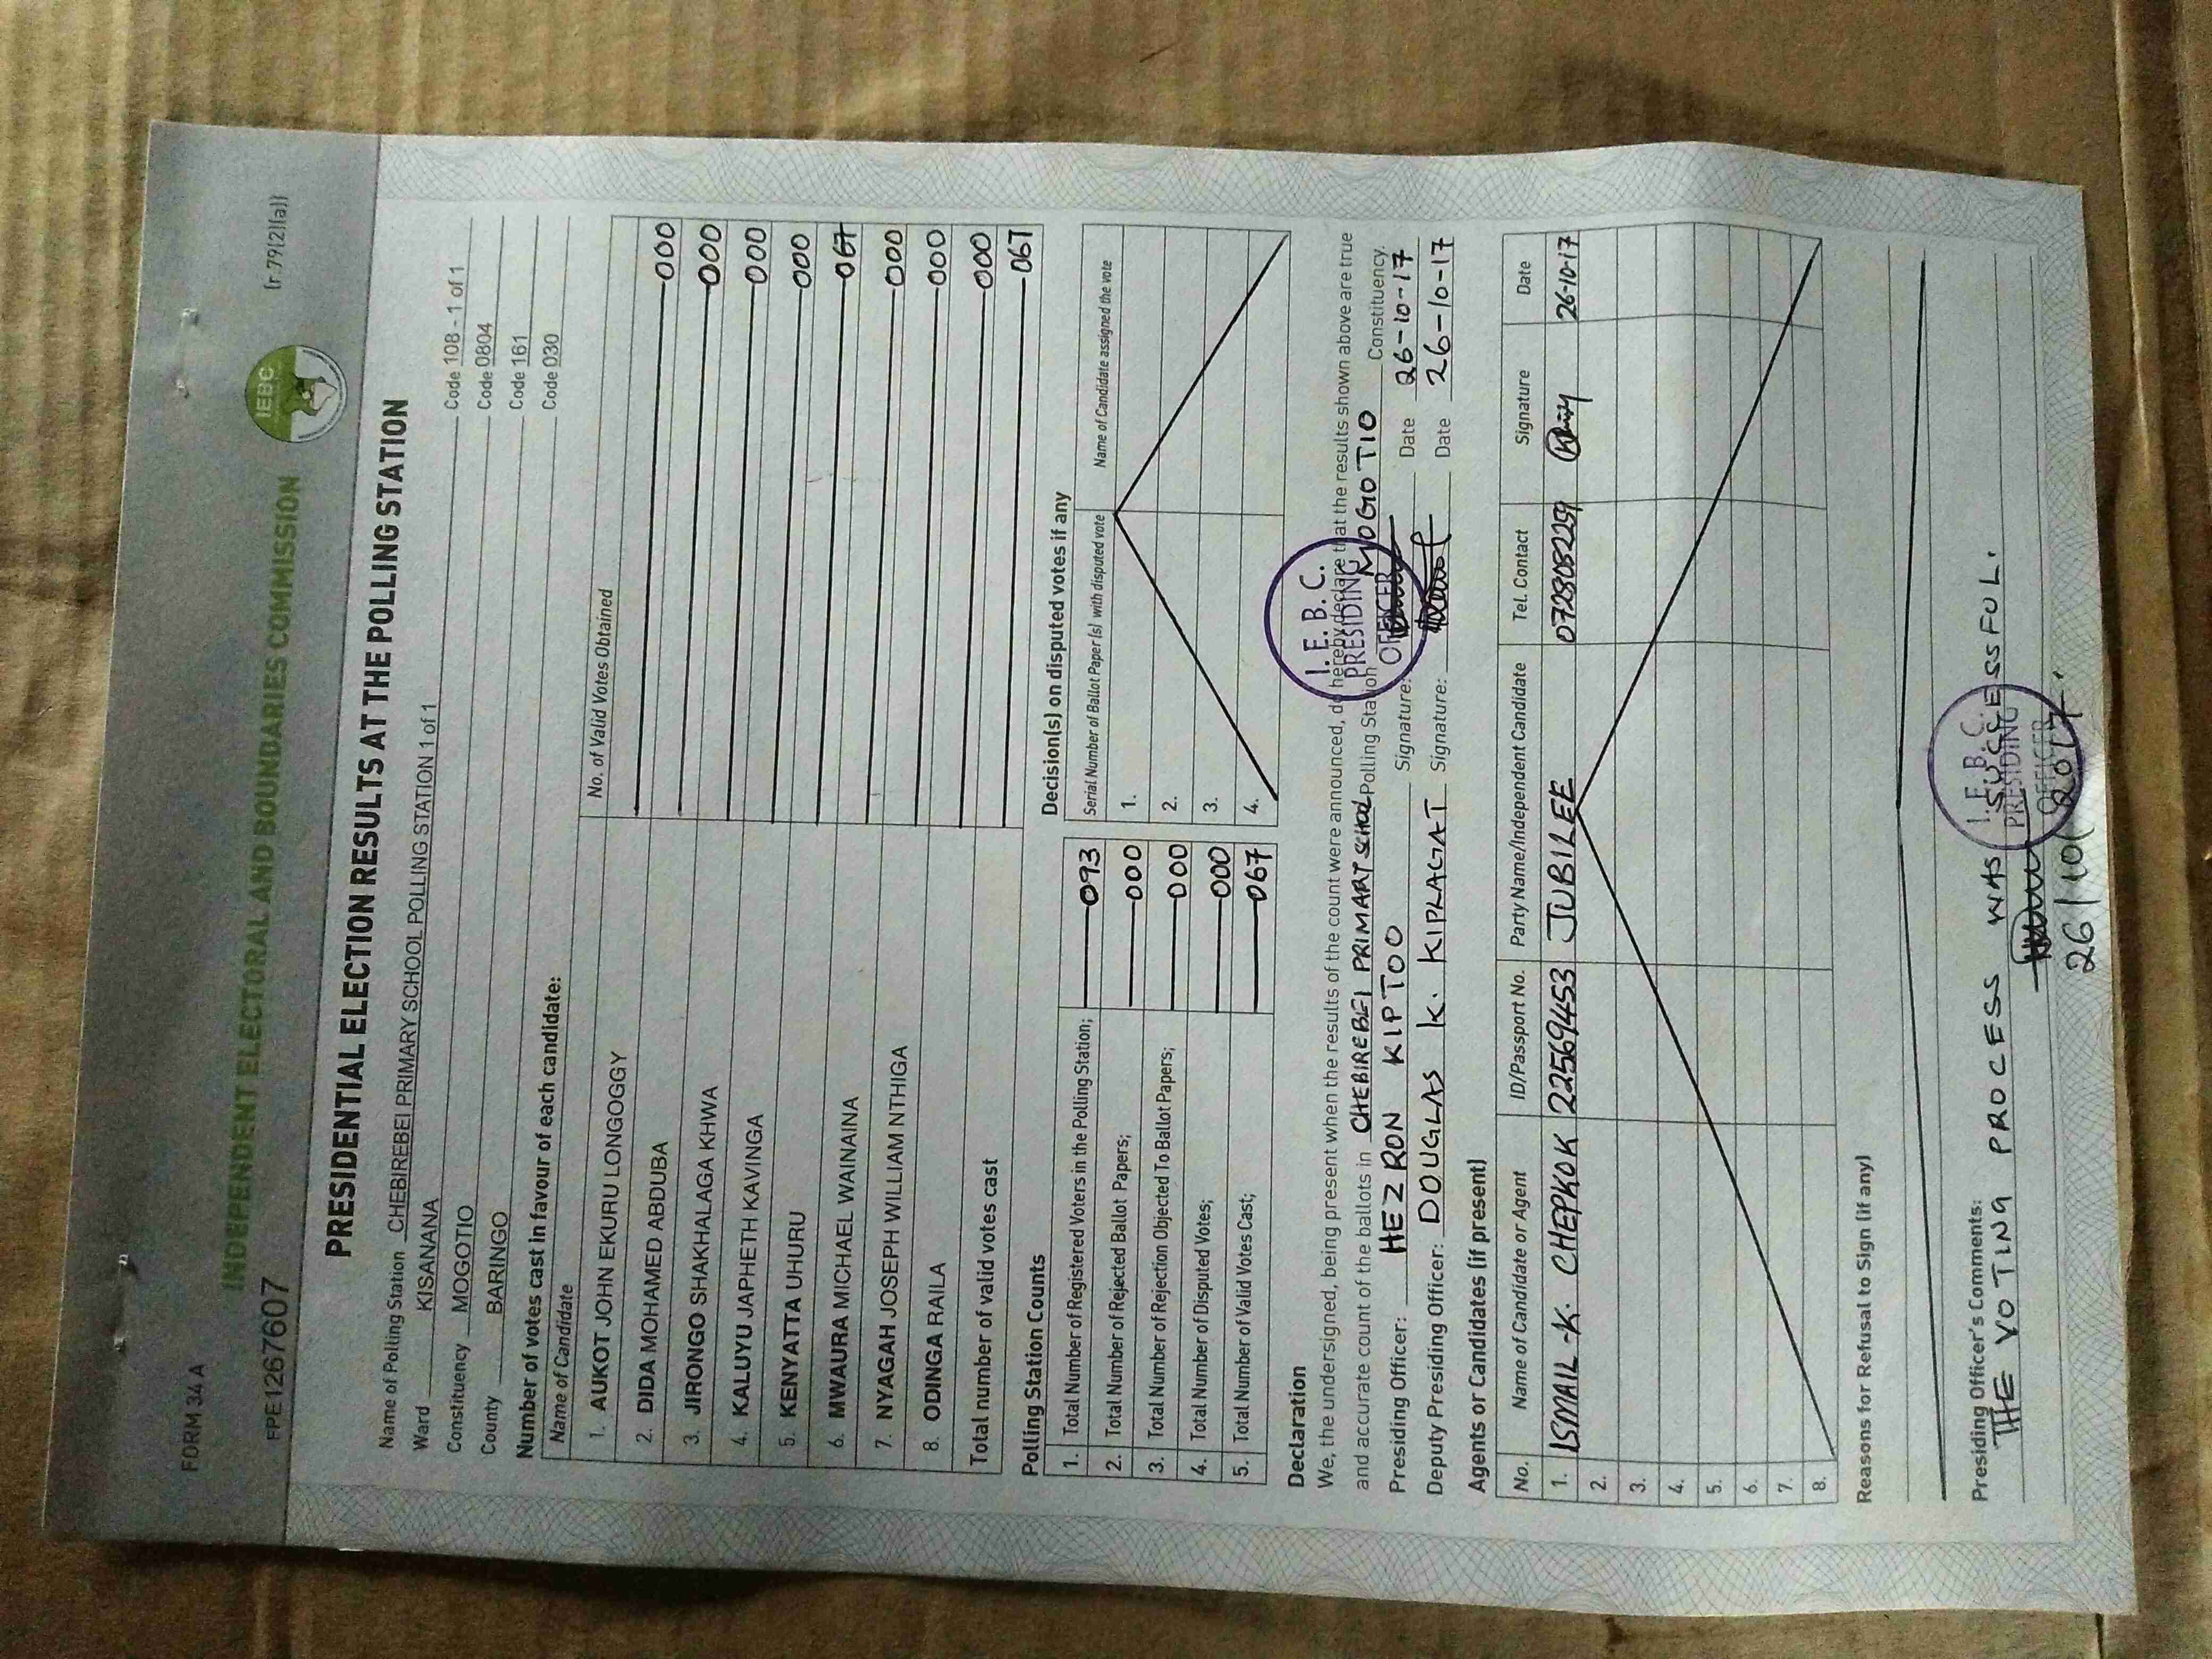 FORM 34 A
(r 79(2)(a))
INDEPENDENT ELECTORAL AND BOUNDARIES COMMISSION
IEBC
FPE1267607
PRESIDENTIAL ELECTION RESULTS AT THE POLLING STATION
Name of Polling Station CHEBIREBEI PRIMARY SCHOOL POLLING STATION 1 of 1 Code 108 - 1 of 1
Ward KISANANA Code 0804
Constituency MOGOTIO Code 161
County BARINGO Code 030
Number of votes cast in favour of each candidate:
Name of Candidate No. of Valid Votes Obtained
1. AUKOT JOHN EKURU LONGOGGY 000
2. DIDA MOHAMED ABDUBA 000
3. JIRONGO SHAKHALAGA KHWA 000
4. KALUYU JAPHETH KAVINGA 000
5. KENYATTA UHURU 067
6. MWAURA MICHAEL WAINAINA 000
7. NYAGAH JOSEPH WILLIAM NTHIGA 000
8. ODINGA RAILA 000
Total number of valid votes cast 067
Polling Station Counts
1. Total Number of Registered Voters in the Polling Station; 093
2. Total Number of Rejected Ballot Papers; 000
3. Total Number of Rejection Objected To Ballot Papers; 000
4. Total Number of Disputed Votes; 000
5. Total Number of Valid Votes Cast; 067
Decision(s) on disputed votes if any
Serial Number of Ballot Paper (s) with disputed vote Name of Candidate assigned the vote
1.
2.
3.
4.
Declaration
We, the undersigned, being present when the results of the count were announced, do hereby declare that the results shown above are true
and accurate count of the ballots in CHEBIREBEI PRIMARY SCHOOL Polling Station MOGOTIO Constituency.
Presiding Officer: HEZRON KIPTOO Signature: Date 26-10-17
Deputy Presiding Officer: DOUGLAS K. KIPLAGAT Signature: Date 26-10-17
I. E. B. C.
PRESIDING
OFFICER
Agents or Candidates (if present)
No. Name of Candidate or Agent ID/Passport No. Party Name/Independent Candidate Tel. Contact Signature Date
1. ISMAIL K. CHEPKOK 22569453 JUBILEE 26-10-17
2.
3.
4.
5.
6.
7.
8.
Reasons for Refusal to Sign (if any)
Presiding Officer's Comments:
THE VOTING PROCESS WAS SUCCESSFUL.
I. E. B. C.
PRESIDING
OFFICER
26/10/2017.